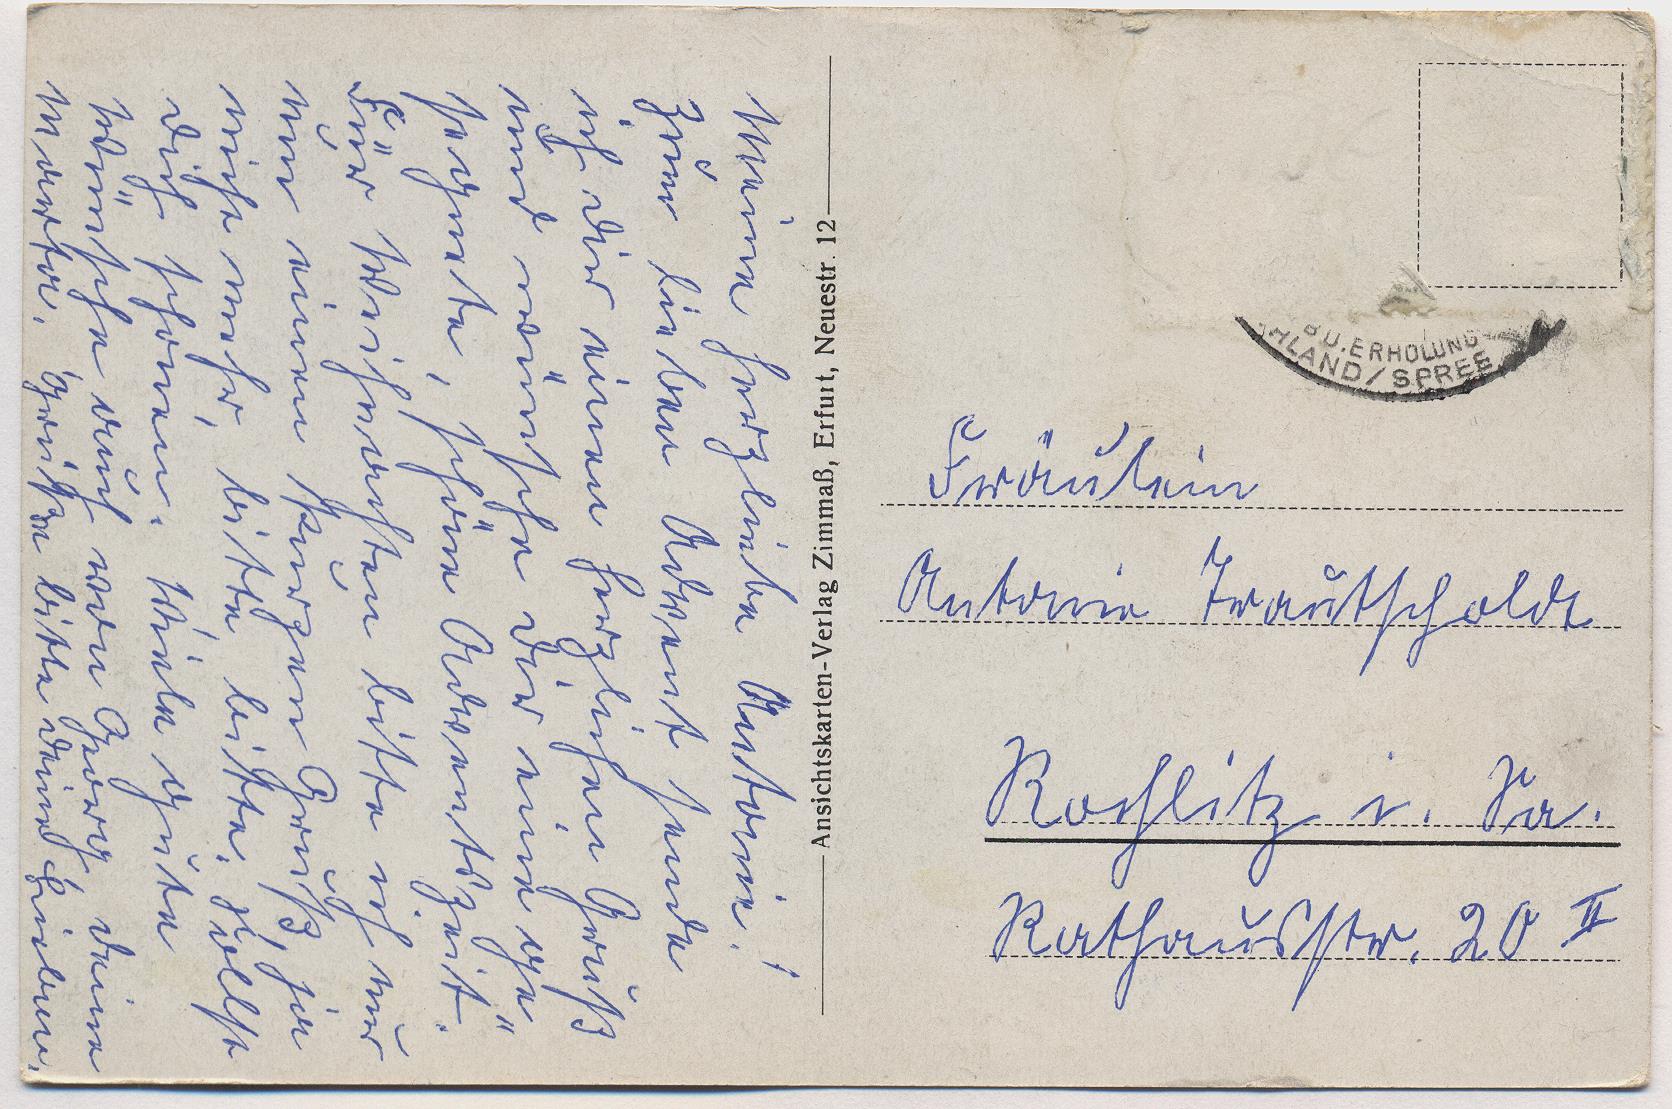 Meine herzliebe Antonie!
Zum lieben Advent sende
ich dir einen herzlichen Gruß
und wünsche Dir eine ge=
segnete, schöne Adventszeit.
Für Weihnachten bitte ich nur
um einen kurzen Gruß, ja
nicht mehr, bitte bitte! Sollst
Dich schonen. Viele gute
Wünsche auch von Georg, Deine
Marta. Grüße bitte deine Lieben.
Ansichtskarten-Verlag Zimmaß, Erfurt, Neuestr. 12
B U. ERHOLUNG
HLAND / SPREE
Fräulein
Antonie Trautscholdt
Rochlitz i. Sa.
Rathausstr. 20 II